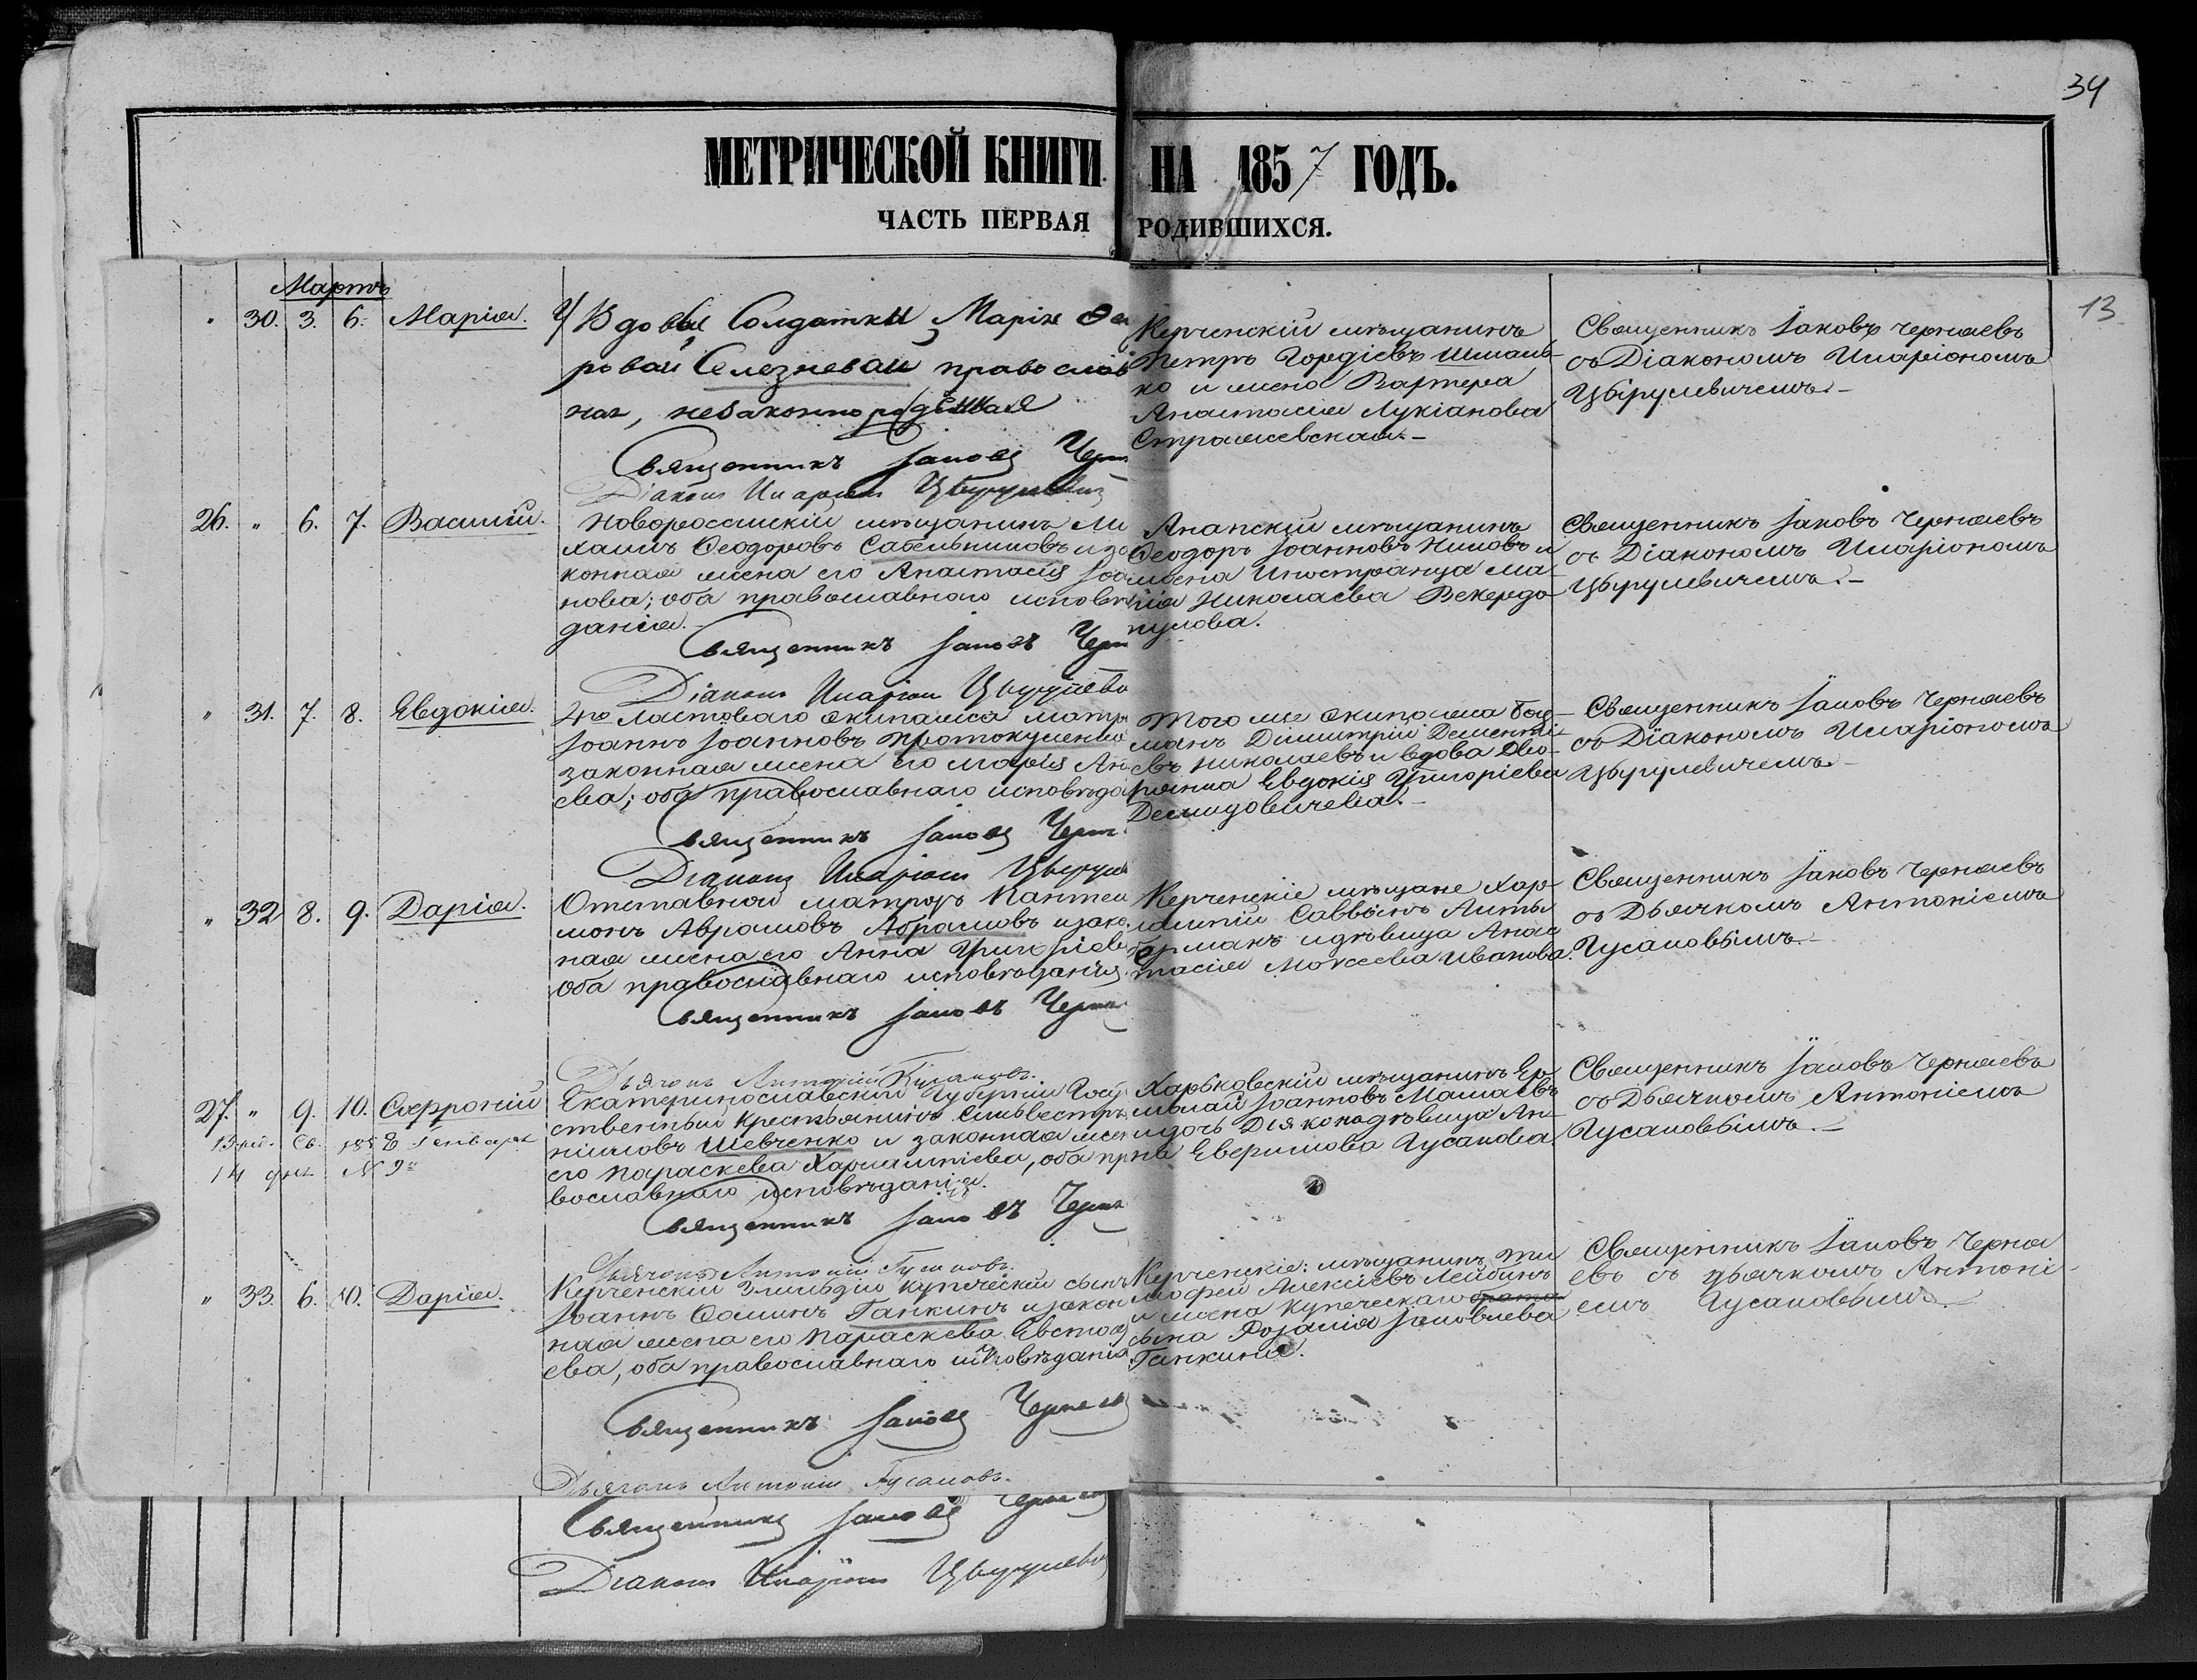 34
МЕТРИЧЕСКОЙ КНИГИ НА 1857 ГОДЪ.
ЧАСТЬ ПЕРВАЯ РОДИВШИХСЯ.
13
Мартъ
" 30. 3. 6. Марія.
Вдовы Солдатки Маріи Ѳео
ровой Селезневай православ
ная, незаконнорожденная
Священникъ Іаковъ Черн
Діаконъ Иларіонъ Цырулевич
Керченскій мѣщанинъ
Петръ Гордіевъ Шмань-
ко и жена Вахтера
Анастасія Лукіанова
Стражевская.
Священникъ Іаковъ Черняевъ
съ Діакономъ Иларіономъ
Цырулевичемъ.
26. " 6. 7. Василій.
Новороссійскій мѣщанинъ Ми
хаилъ Ѳеодоровъ Сабельниковъ и за
конная жена его Анастасія Іоа
нова; оба православнаго исповѣ
данія.
Священникъ Іаковъ Черн
Діаконъ Иларіон Цырулево
Анапскій мѣщанинъ
Ѳеодоръ Іоанновъ Ниловъ и
жена Иностранца Ма
рія Николаева Векердо
пулова.
Священникъ Іаковъ Черняевъ
съ Діакономъ Иларіономъ
Цырулевичемъ.
" 31. 7. 8. Евдокія.
4го Ластоваго экипажа матро
Іоаннъ Іоанновъ Протокуленко
законная жена его Марія Ан
ева; оба православнаго исповѣда
Священникъ Іаковъ Черн
Діаконъ Иларіон Цырул
Того же экипажа боц-
манъ Димитрій Дементі-
евъ Николаевъ и вдова Дво-
рянка Евдокія Григоріева
Демидовичева.
Священникъ Іаковъ Черняевъ
съ Діакономъ Иларіономъ
Цырулевичемъ.
" 32 8. 9. Дарія.
Отставной матрозъ Пантеи
монъ Аврамовъ Абрамовъ и зако
ная жена его Анна Григоріев
оба православнаго исповѣданія.
Священникъ Іаковъ Черня
Дьячокъ Антоній Гусаковъ.
Керченскіе мѣщане Хар-
лампій Саввинъ Литы
барманъ и дѣвица Анас
тасія Моисеева Иванова.
Священникъ Іаковъ Черняевъ
съ Дьячкомъ Антоніемъ
Гусаковымъ.
27. " 9. 10. Софроній
1858 Генваря
14 дня № 9
Екатеринославской Губерніи Госу
ственный крестьянинъ Сильвестръ
ніиловъ Шевченко и законная жен
его Параскева Харлампіева, оба пр
вославнаго исповѣданія.
Священникъ Іаковъ Черня
Дьячокъ Антоній Гусаковъ.
Харьковскій мѣщанинъ Ер-
молай Іоанновъ Машаевъ
и дочь Діякона дѣвица Ан-
на Евѳимова Гусакова
Священникъ Іаковъ Черняевъ
съ Дьячкомъ Антоніемъ
Гусаковымъ.
" 33. 6. 10. Дарія.
Керченскій 3 гильдіи купеческій сынъ
Іоаннъ Ѳоминъ Ганкинъ и закон
ная жена его Параскева Евстаѳ
ева, оба православнаго исповѣданія
Священникъ Іаковъ Черняев
Дьячокъ Антоній Гусаковъ.
Керченскіе: мѣщанинъ Ти
моѳей Алексіевъ Лейбинъ
и жена купеческаго брата
сына Розалія Іаковлева
Ганкина.
Священникъ Іаковъ Черня
евъ съ дьячкомъ Антоні-
емъ Гусаковымъ.
Священникъ Іаковъ Черняев
Діаконъ Иларіонъ Цырулев